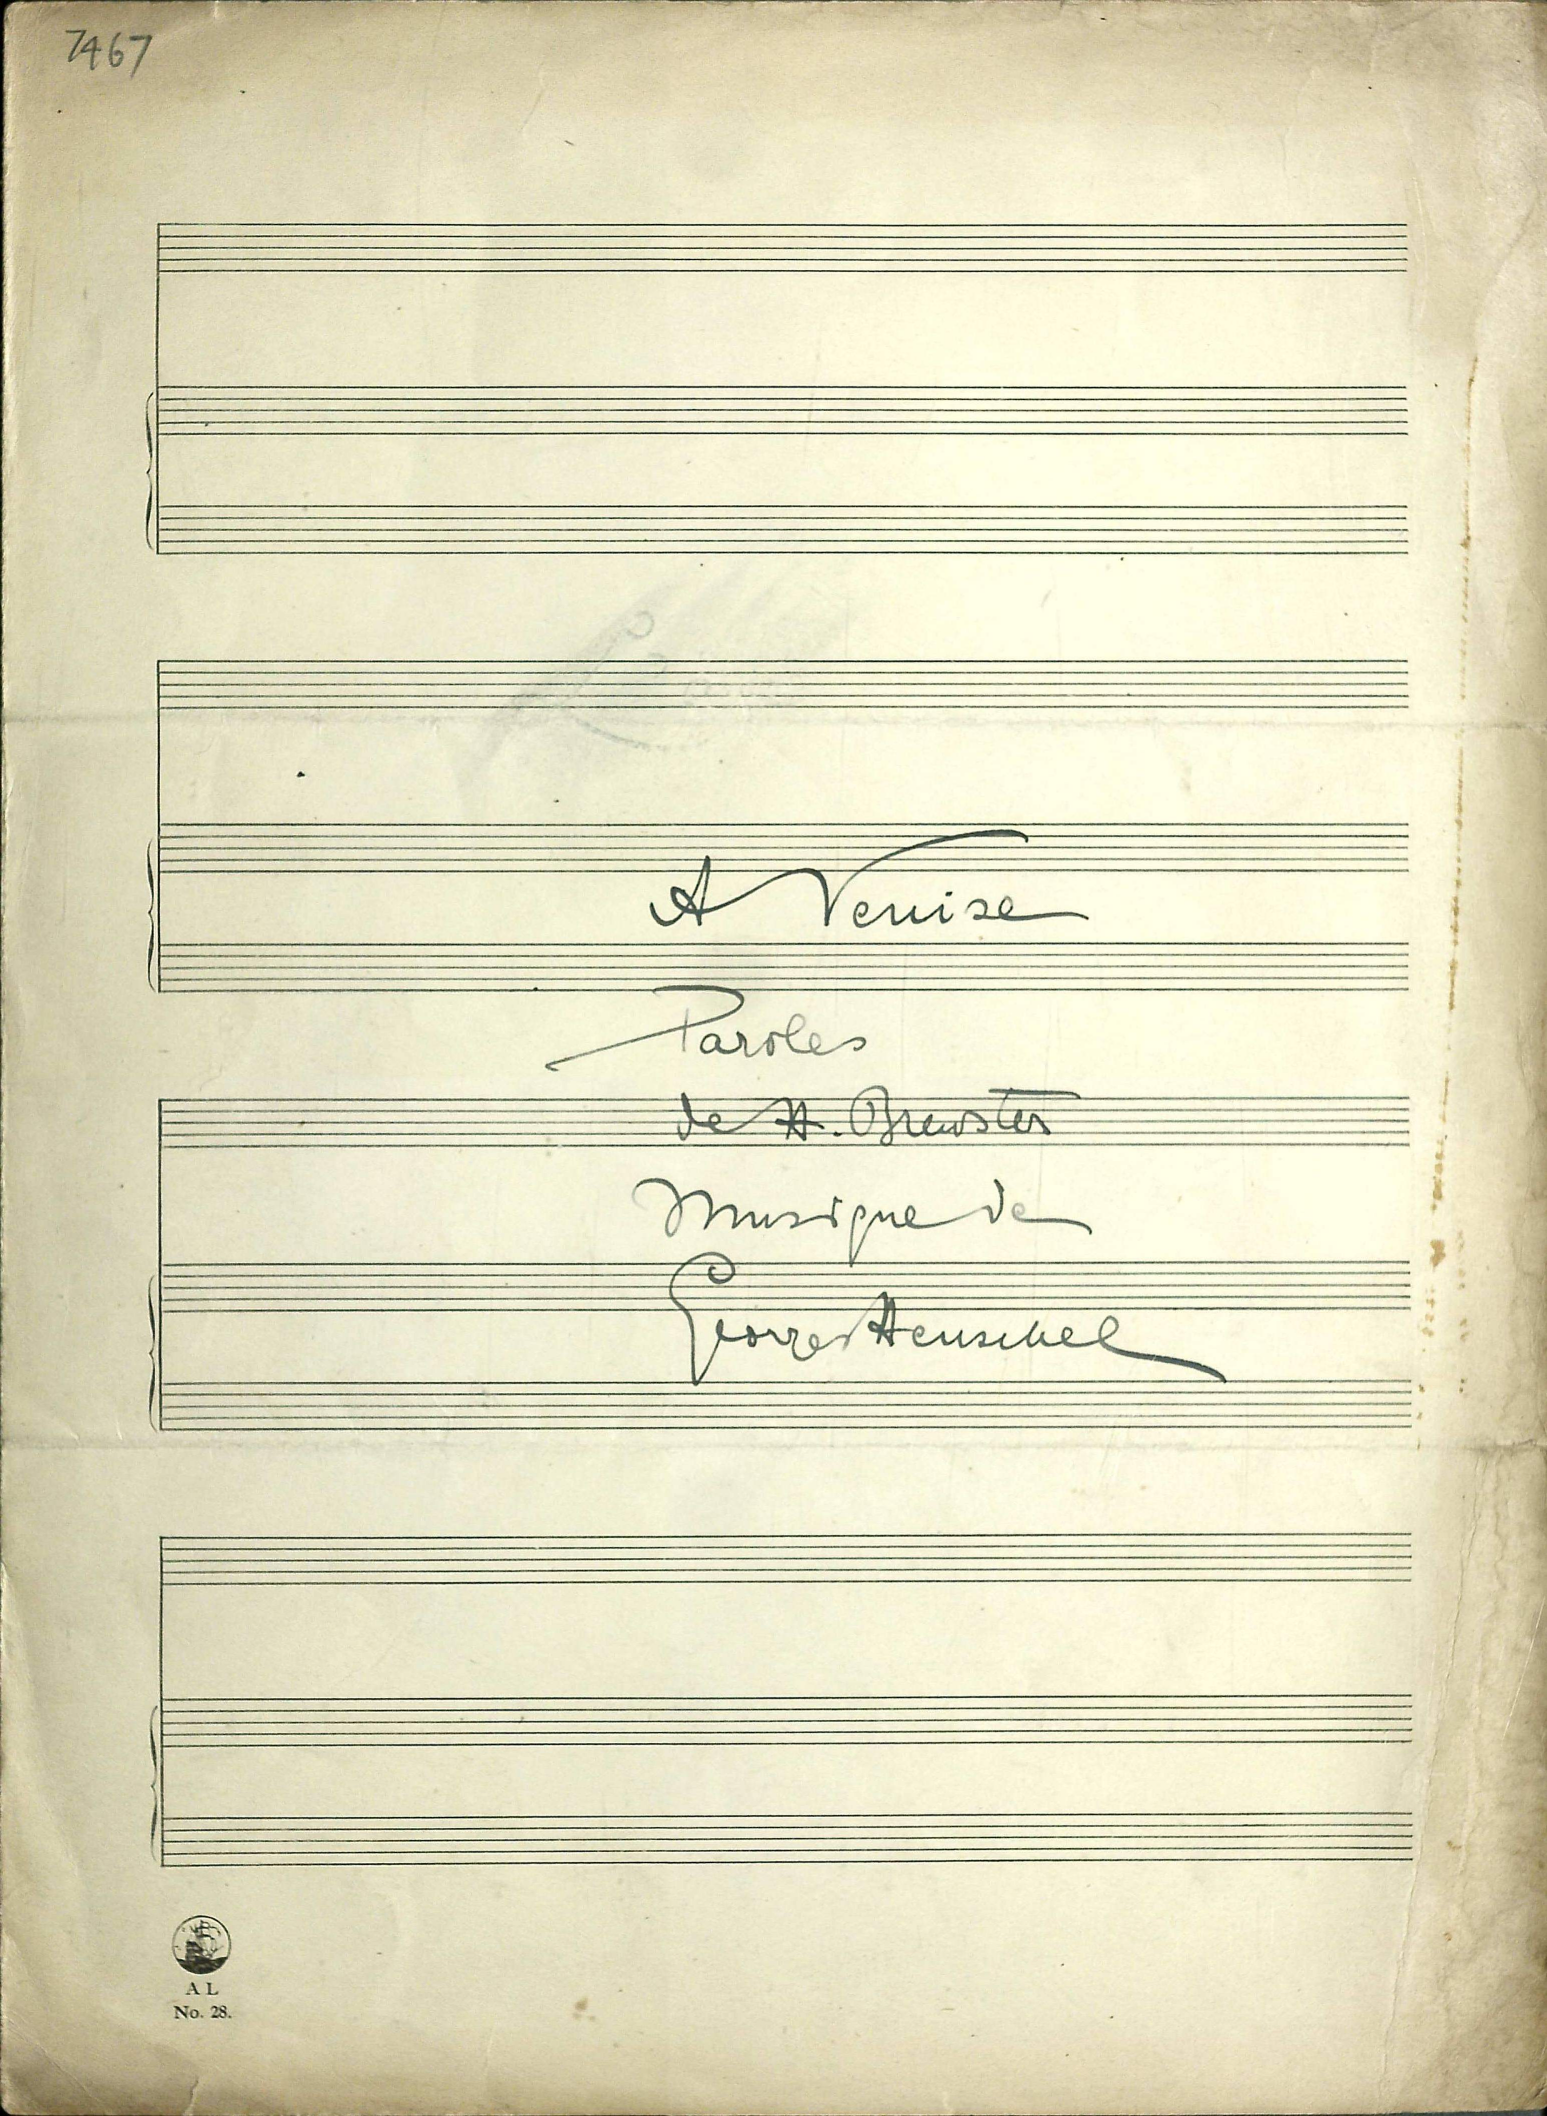 7467
A Venise
Paroles
de H. Brewster
Musique de
Georg Henschel
A L
No. 28.